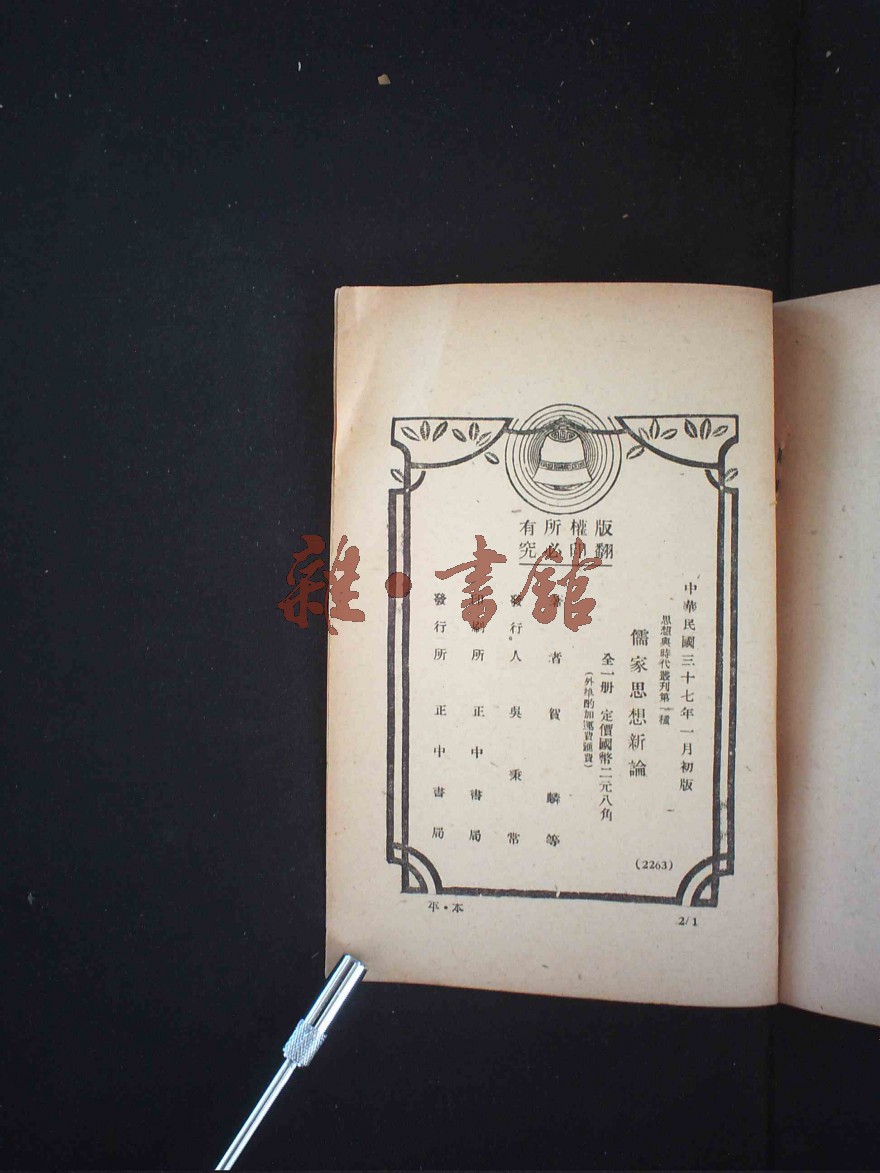 版權所有
翻印必究
中華民國三十七年一月初版
思想與時代叢刊第一種
儒家思想新論
全一册 定價國幣二元八角
(外埠酌加運費匯費)
著者 賀麟等
發行人 吳秉常
印刷所 正中書局
發行所 正中書局
(2263)
平・本
2/1
雜・書館